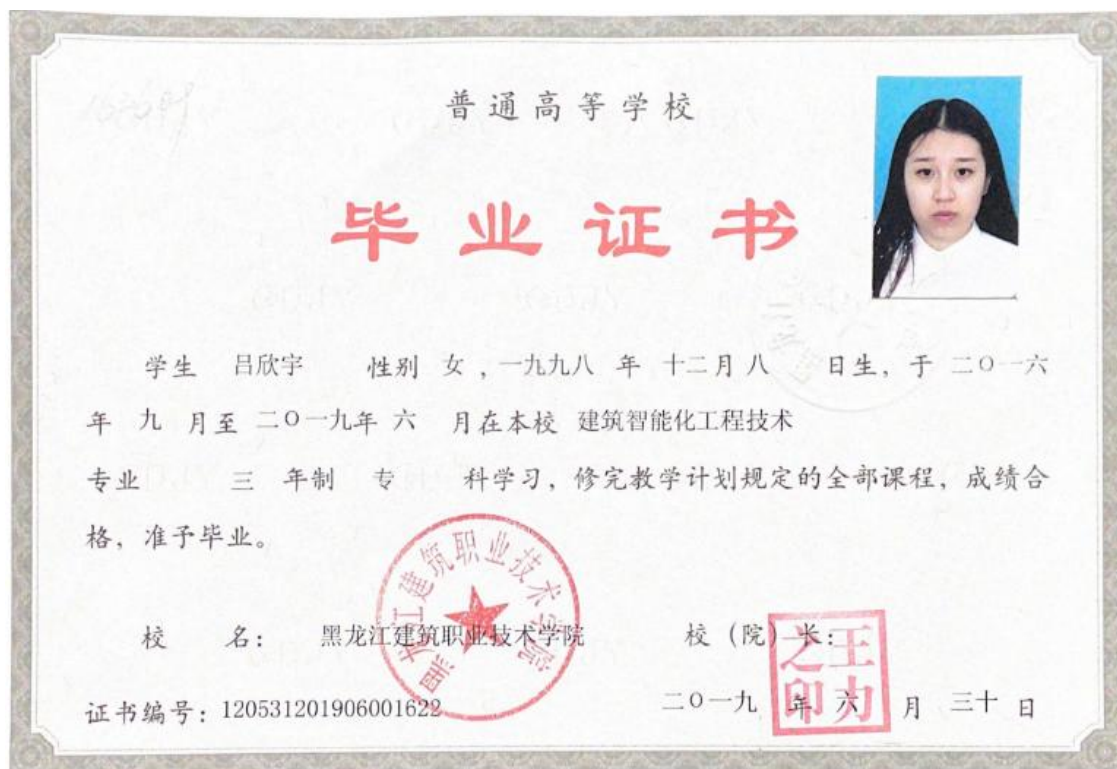 普通高等学校
毕业证书
学生 吕欣宇 性别 女，一九九八 年 十二月 八 日生，于 二○一六
年 九 月至 二○一九年 六 月在本校 建筑智能化工程技术
专业 三 年制 专 科学习，修完教学计划规定的全部课程，成绩合
格，准予毕业。
黑龙江建筑职业技术学院
校 名： 黑龙江建筑职业技术学院 校（院）长：
王力之印
证书编号：120531201906001622 二○一九 年 六 月 三十 日